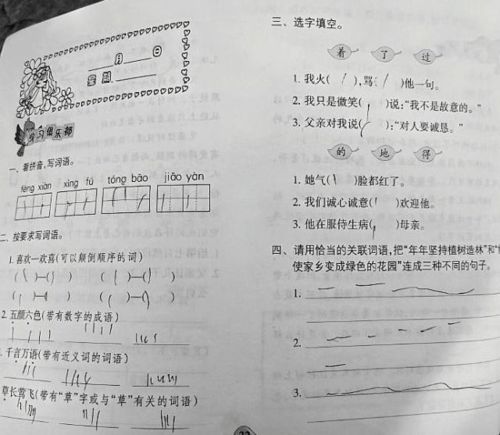 月 日
星期
学习俱乐部
一、看拼音,写词语。
fèng xiàn xìng fú tóng bāo jiāo yàn
二、按要求写词语。
1. 喜欢—欢喜(可以颠倒顺序的词)
( )—( ) ( )—( )
( )—( ) ( )—( )
2. 五颜六色(带有数字的成语)
3. 千言万语(带有近义词的词语)
草长莺飞(带有“草”字或与“草”有关的词语)
三、选字填空。
着 了 过
1. 我火( ),骂( )他一句。
2. 我只是微笑( )说:“我不是故意的。”
3. 父亲对我说( ):“对人要诚恳。”
的 地 得
1. 她气( )脸都红了。
2. 我们诚心诚意( )欢迎他。
3. 他在服侍生病( )母亲。
四、请用恰当的关联词语,把“年年坚持植树造林”和“
使家乡变成绿色的花园”连成三种不同的句子。
1.
2.
3.